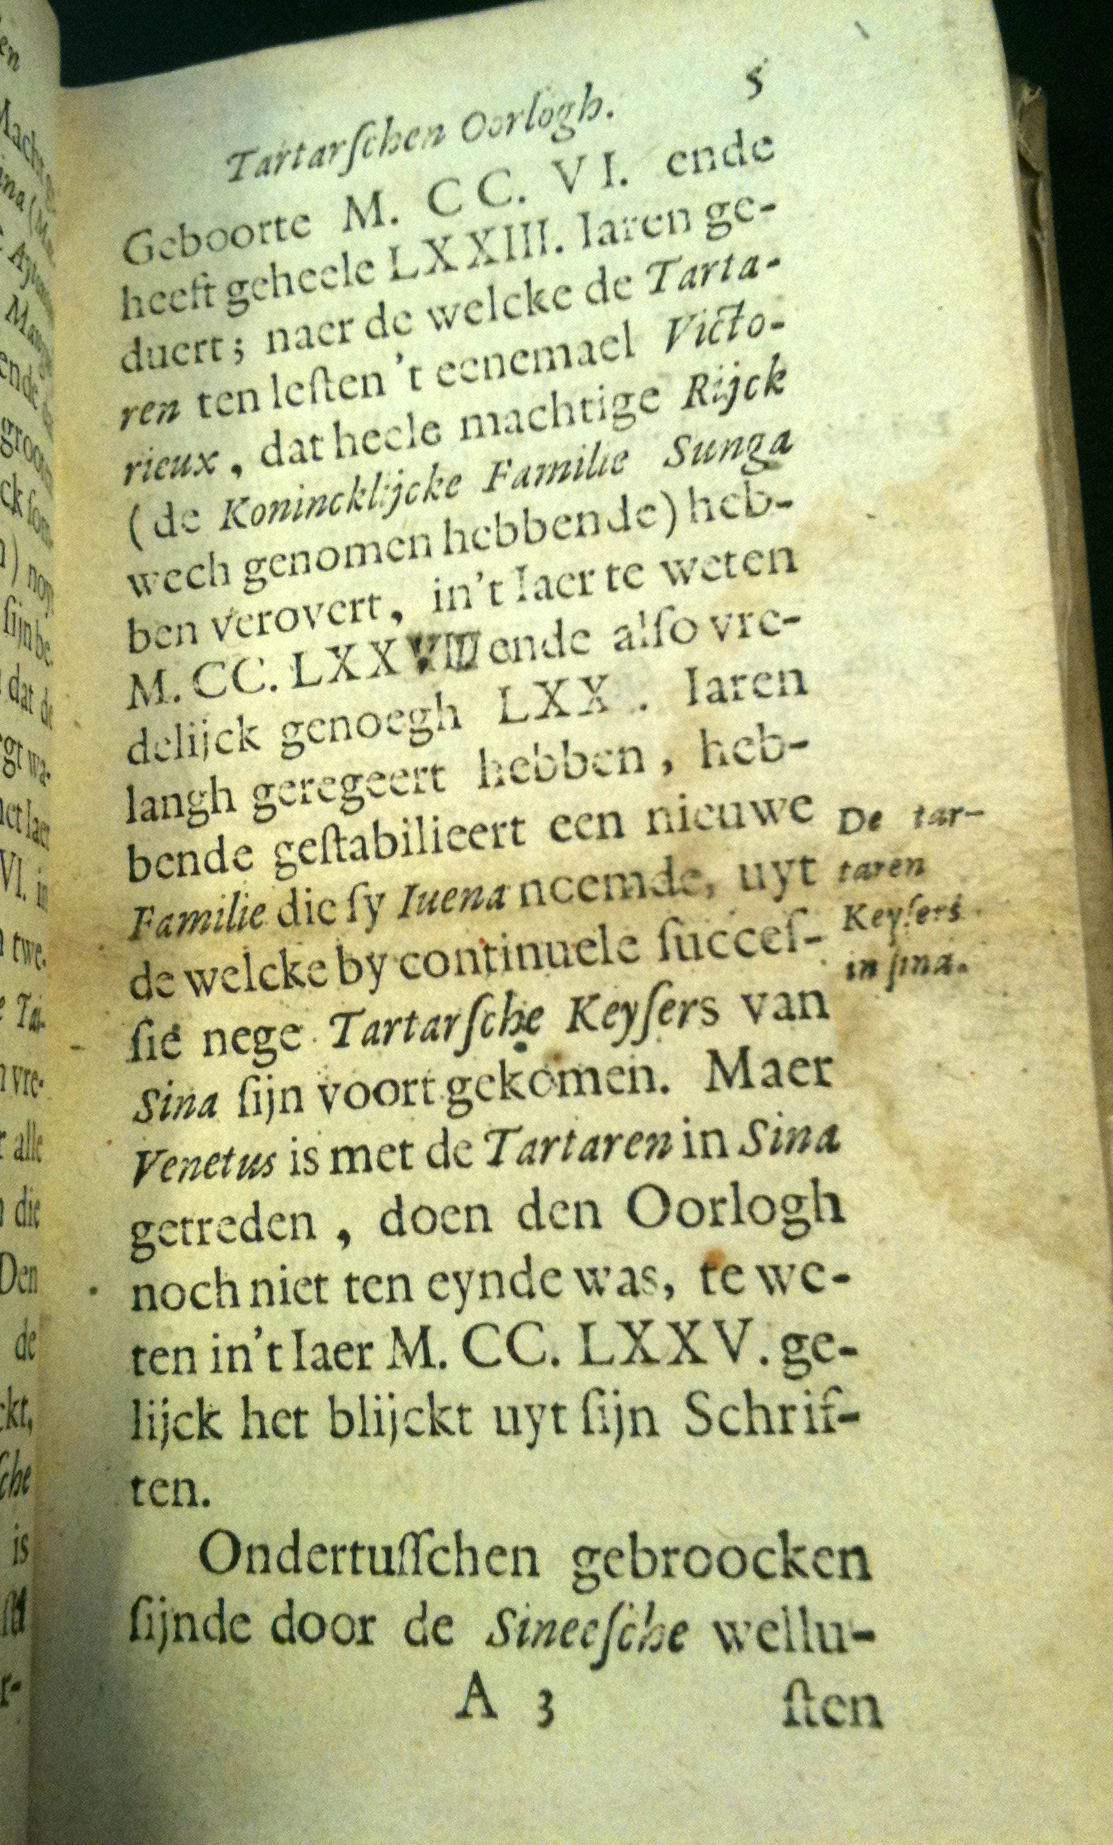 Tartarſchen Oorlogh. 5
Geboorte M. CC. VI. ende
heeft geheele LXXIII. Iaren ge-
duert; naer de welcke de Tarta-
ren ten leſten 't eenemael Victo-
rieux, dat heele machtige Rijck
(de Konincklijcke Familie Sunga
wech genomen hebbende) heb-
ben verovert, in't Iaer te weten
M. CC. LXXVIII ende alſo vre-
delijck genoegh LXX. Iaren
langh geregeert hebben, heb-
bende geſtabilieert een nieuwe
Familie die ſy Iuena neemde, uyt
de welcke by continuele ſucceſ-
ſie nege Tartarſche Keyſers van
Sina ſijn voort gekomen. Maer
Venetus is met de Tartaren in Sina
getreden, doen den Oorlogh
noch niet ten eynde was, te we-
ten in't Iaer M. CC. LXXV. ge-
lijck het blijckt uyt ſijn Schrif-
ten.
De tar-
taren
Keyſers
in ſina.
Ondertuſſchen gebroocken
ſijnde door de Sineeſche wellu-
A 3 ſten